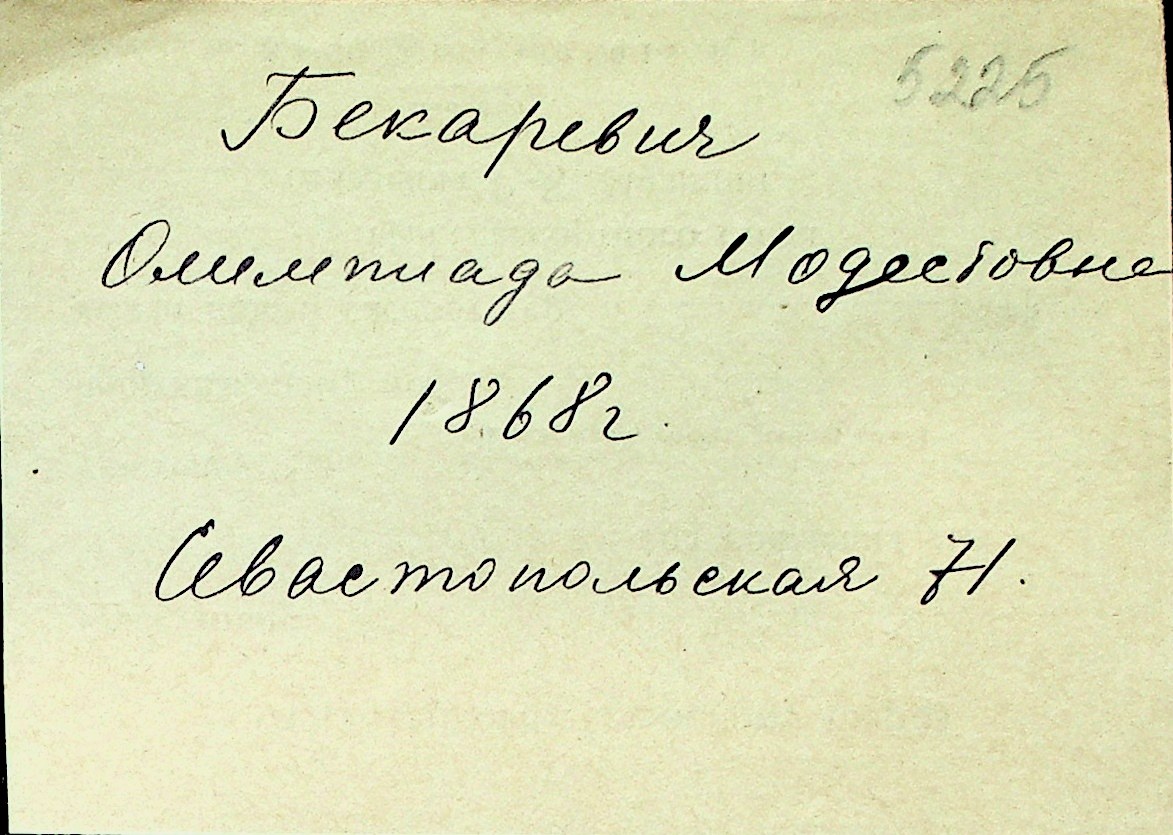 5225
Бекаревич
Олимпиада Модестовна
1868г.
Севастопольская 71.